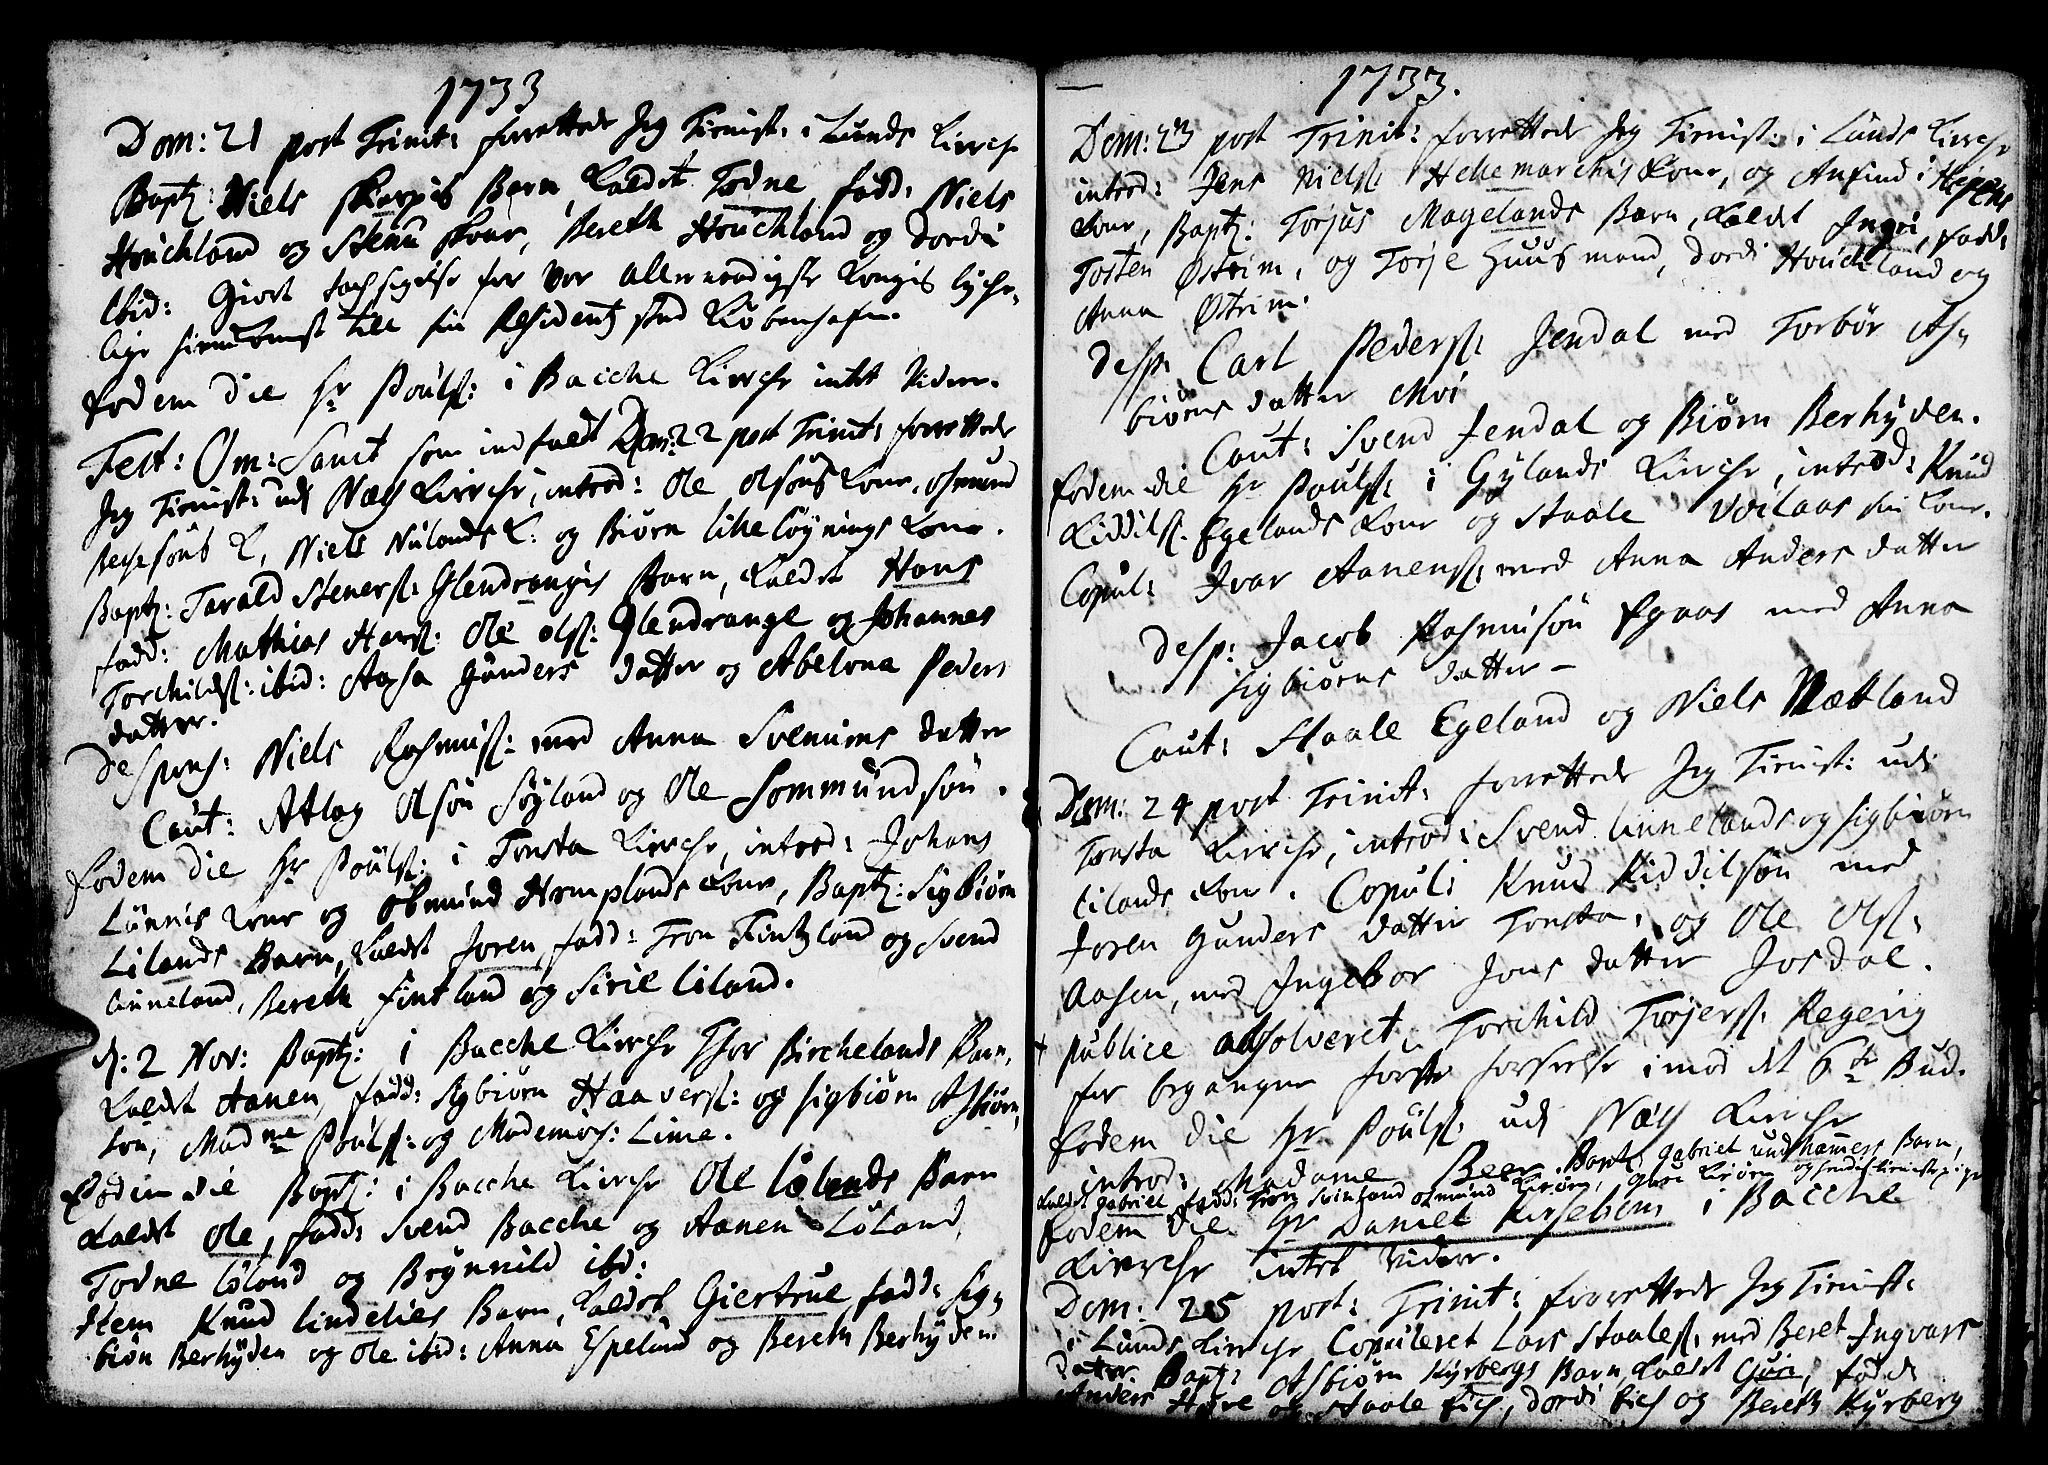 1733
Dom: 21 post Trinit: forrettede Jeg Tienist: i Lunds Kirche
Bapt: Niels Skarpis Barn, Kaldet Todne, fadd: Niels
Houchland og Stenu Skar, Bereth Houchland og Dordi
ibid: Giort tachsigelse for vor allernaadigste Kongis lyche-
lige hiemkomst till sin Residentz stad Kiøbenhafn.
Eodem die Hr Pouls: i Bacche Kirche intet videre.
Fest: Om: Sanct som indfaldt Dom: 22 post Trinit: forrettede
Jeg Tienist: udj Næs Kirche, introd: Ole Olsøns Kone, Osmund
K, Niels Nulands K: og Biørn Kone.
Bapt: Tarald Steners: Glendrangis Barn, Kaldet Hans
fadd: Mathias Hans: Ole Ols: Glendrange og Johannes
Torchilds: ibid: Aasa Gunders datter og Abelona Peders
datter.
Despons: Niels Rasmus: med Anna Svenums datter
Caut: Atlag Olsøn Søyland og Ole Sommundsøn.
Eodem die Hr Pouls: i Tonsta Kirche, introd: Johans
Kone og Osmund Homplands Kone, Bapt: Sigbiørn
Lilands Barn, Kaldet Joren, fadd: Tron Fintzland og Svend
Linneland, Bereth Fintland og Sirie Liland.
d: 2 Nov: Bapt: i Bacche Kirche Thor Birchelands Barn,
Kaldet Aanen, fadd: Sigbiørn Haavers: og Sigbiørn Asbiørn
søn, Madme Pouls: og Mademois: Lime.
Eodem die Bapt: i Bacche Kirche Ole Lølands Barn
Kaldet Ole, fadd: Svend Bacche og Aanen Løland,
Todne Løland og Brynnild ibd:
Item Knud Lindelies Barn, Kaldet Giertrue, fadd: Sig-
biøn Berhyden og Ole ibid: Anna Espeland og Bereth Berhyden
1733.
Dom: 23 post Trinit: forrettede Jeg Tienist: i Lunds Kirche
introd: Jens Niels: Hellemarchis Kone, og Anfind i
Kone, Bapt: Torjus Magelands Barn, Kaldet Ingri, fadd:
Tosten Østeim, og Torje Huusmand, Dordi Houchland og
Anna Østeim.
Desp: Carl Peders: Jendal med Torbør As-
biørns datter Moi
Caut: Svend Jendal og Biørn Berhyden.
Eodem die Hr Pouls: i Gylands Kirche, introd: Knud
Kiddils: Egelands Kone og Staale sin Kone.
Copul: Ivar Aanens: med Anna Anders datter
Desp: Jacob Rasmusøn Egaas med Anna
Sigbiørns datter –
Caut: Staale Egeland og Niels Nætland
Dom: 24 post Trinit: forrettede Jeg Tienist: udi
Tonsta Kirche, introd: Svend Linnelands og Sigbiørn
Lilands Kone. Copul: Knud Kiddilsøn med
Joren Gunders datter Tonsta, og Ole Ols:
Aasen, med Ingebor Jons datter Josdal.
publice absolveret Torchild Torjers: Regevig
for begangne første forseelse imod det 6te Bud.
Eodem die Hr Pouls: udj Næs Kirche
introd: Madame Beer, Bapt: Gabriel undhammers Barn,
Kaldet Gabriel, fadd: Tron Svindland Osmund Guri og
Eodem die Hr Daniel i Bacche
Kirche intet videre.
Dom: 25 post: Trinit: forrettede Jeg Tienist:
i Lunds Kirche Copuleret Lars Staales: med Beret Ingvars
datter Bapt: Asbiørn Kyrbergs Barn, Kaldet Guri, fadd:
Anders og Staale Eich, Dordi Eich og Bereth Kyrberg